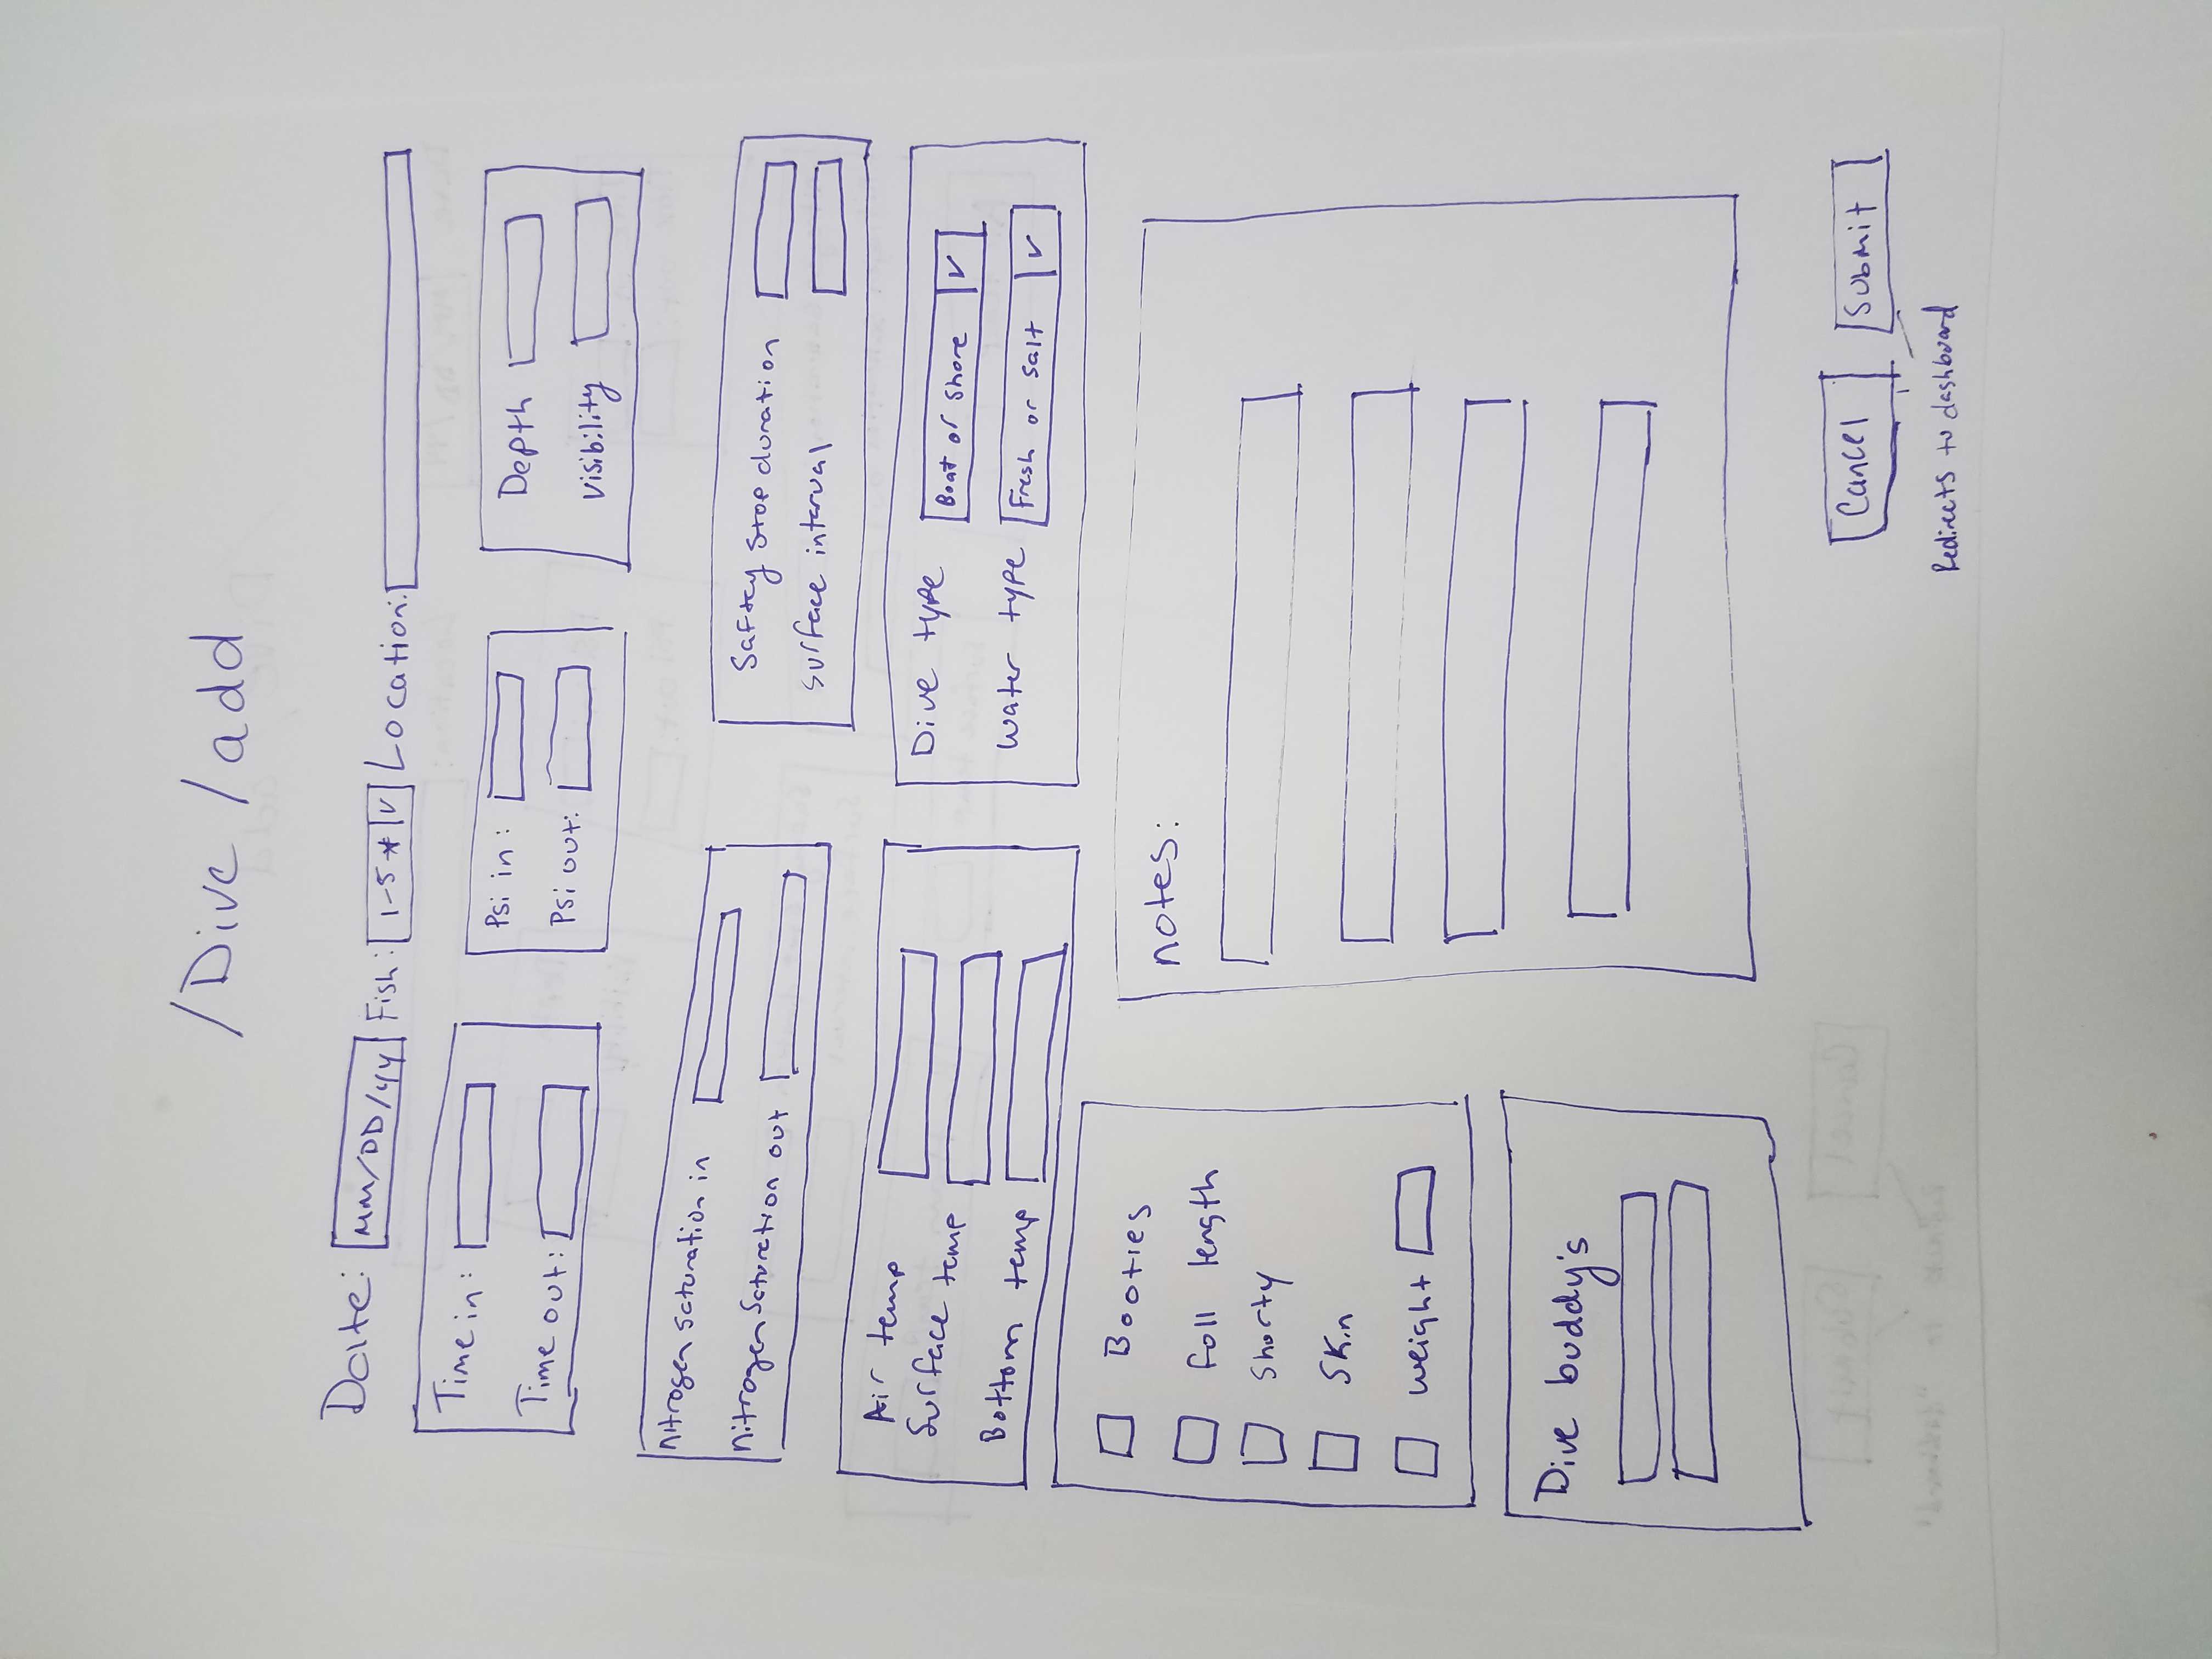 /Dive/add
Date: MM/DD/YY Fish: 1-5* V Location:
Time in:
Time out:
Psi in:
Psi out:
Depth
Visibility
nitrogen saturation in
nitrogen saturation out
Saftey stop duration
surface interval
Air temp
Surface temp
Bottom temp
Dive type Boat or shore V
Water type Fresh or salt V
Booties
foll length
shorty
Skin
weight
notes:
Dive buddy's
Cancel Submit
Redirects to dashboard